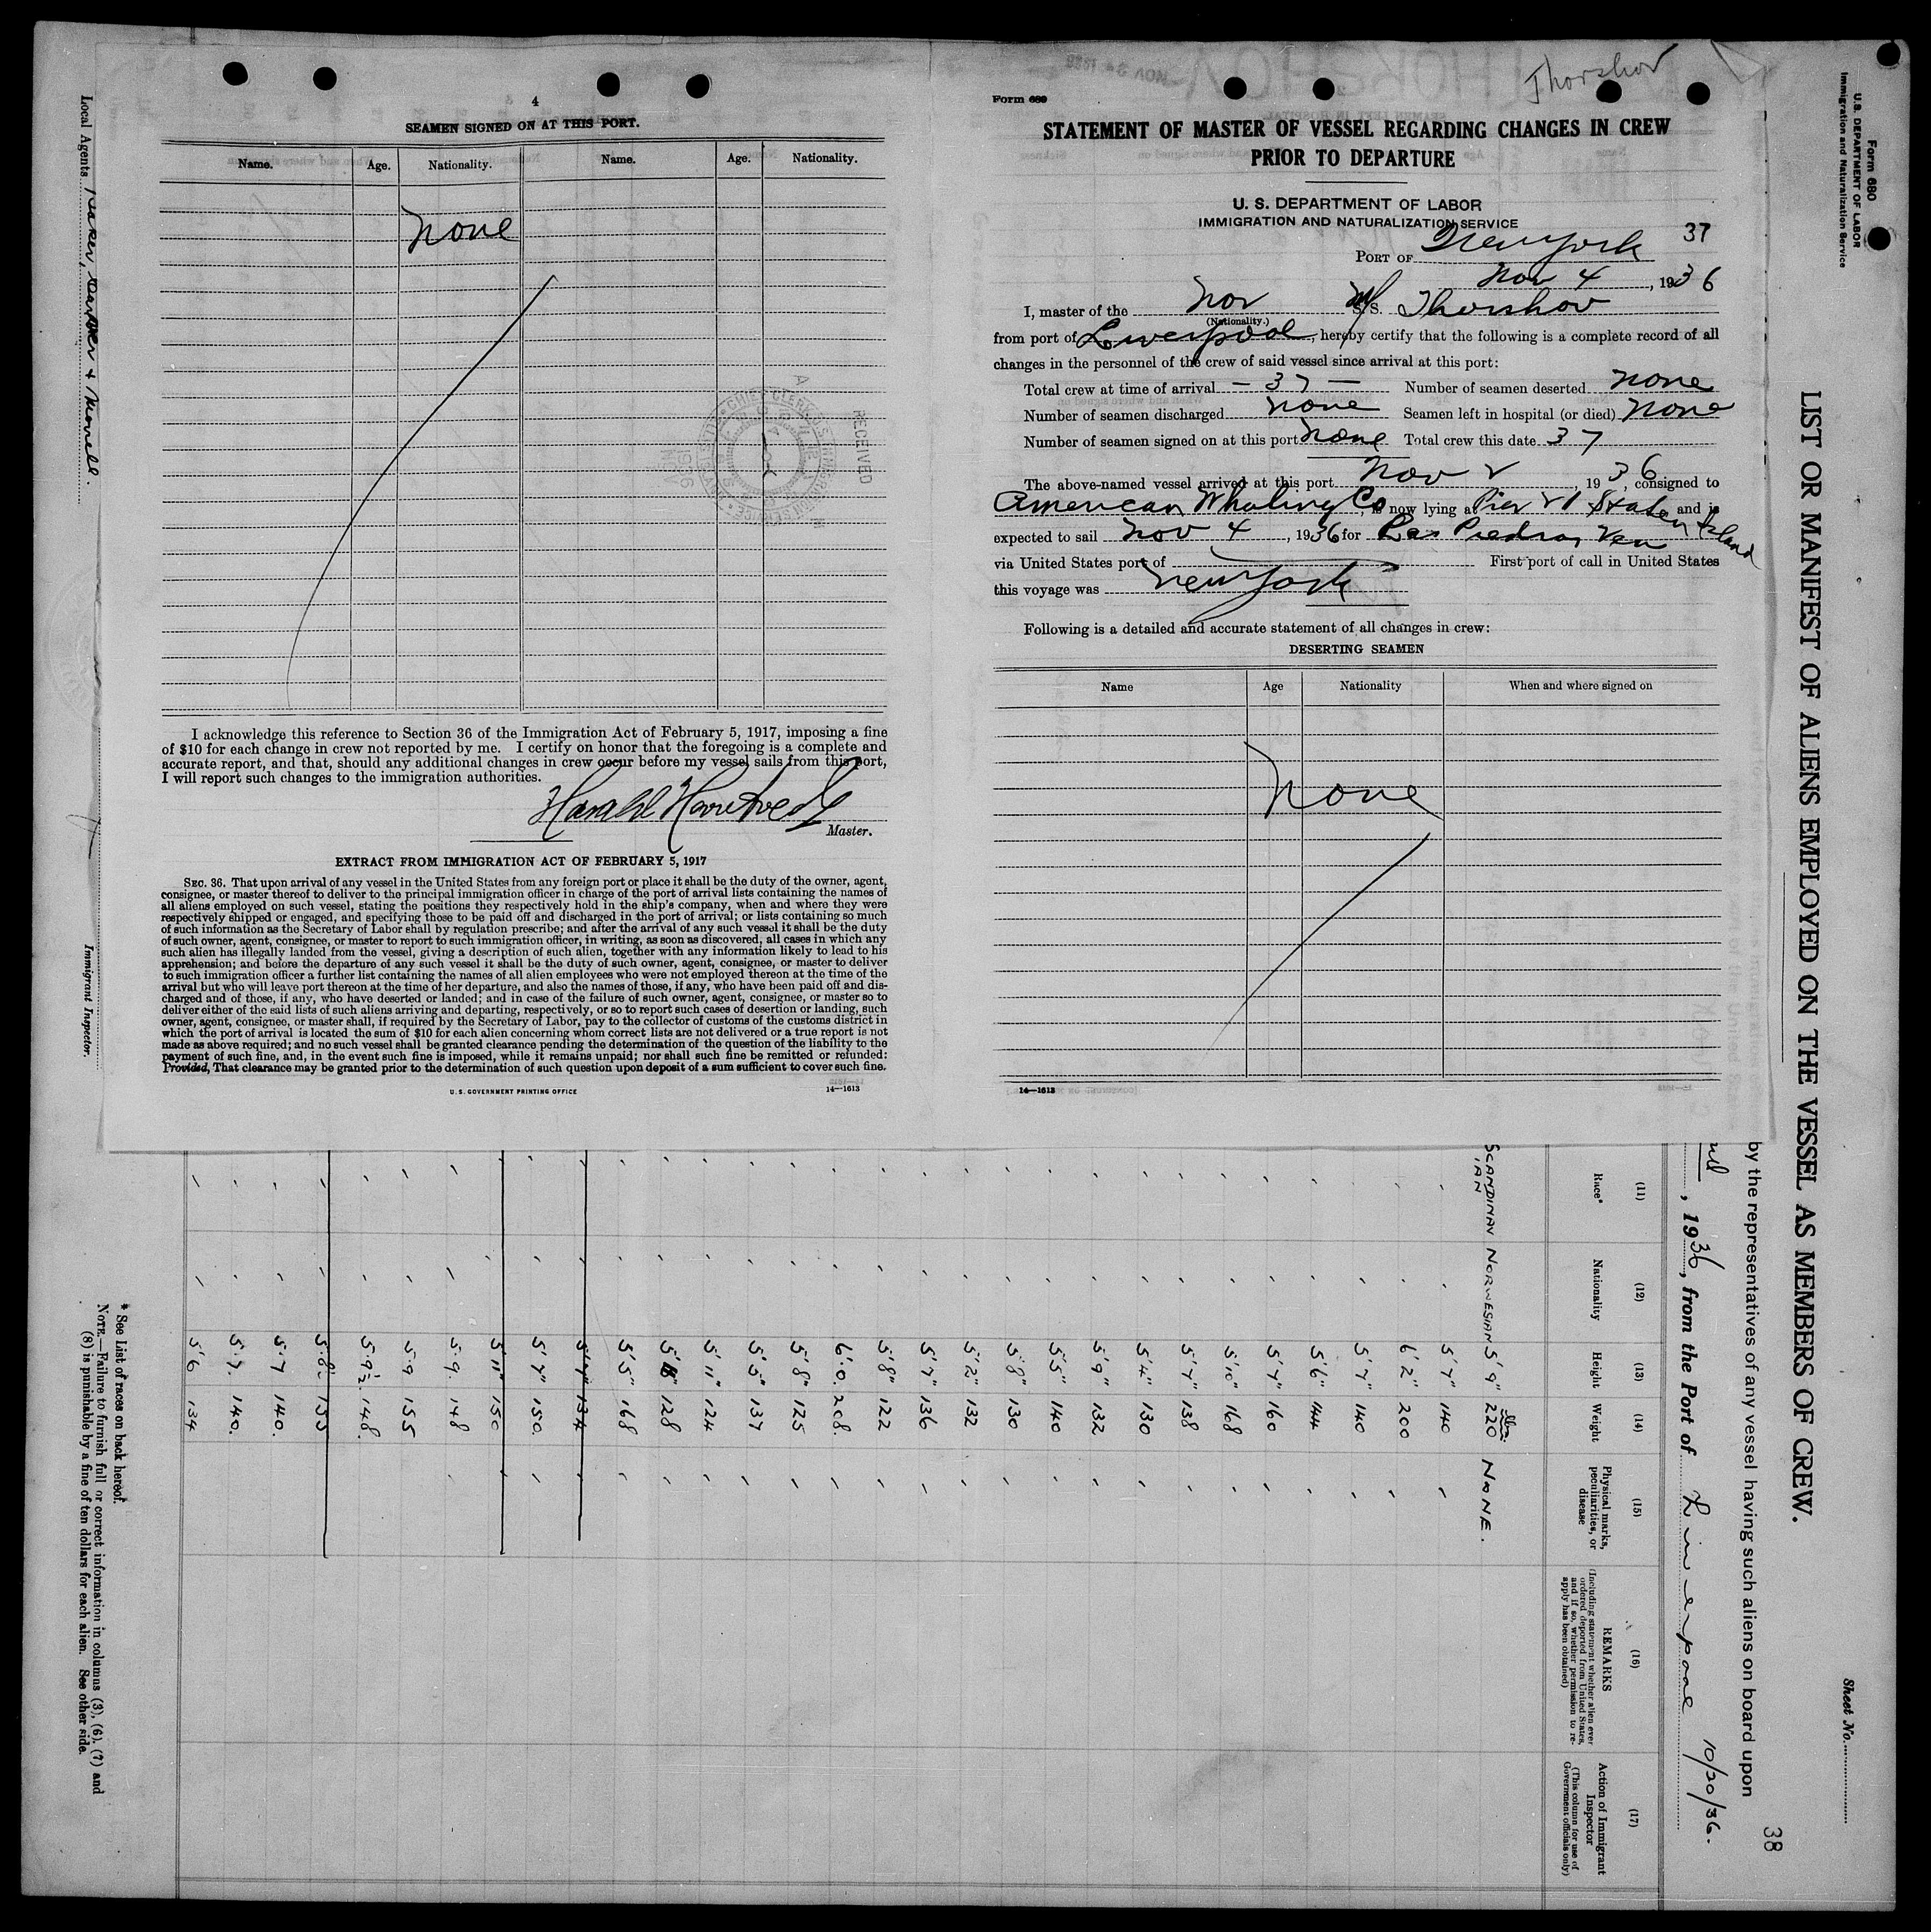 4
SEAMEN SIGNED ON AT THIS PORT.
Name. Age. Nationality. Name. Age. Nationality.
None
RECEIVED
I acknowledge this reference to Section 36 of the Immigration Act of February 5, 1917, imposing a fine
of $10 for each change in crew not reported by me. I certify on honor that the foregoing is a complete and
accurate report, and that, should any additional changes in crew occur before my vessel sails from this port,
I will report such changes to the immigration authorities.
Harald
Master.
EXTRACT FROM IMMIGRATION ACT OF FEBRUARY 5, 1917
SEC. 36. That upon arrival of any vessel in the United States from any foreign port or place it shall be the duty of the owner, agent,
consignee, or master thereof to deliver to the principal immigration officer in charge of the port of arrival lists containing the names of
all aliens employed on such vessel, stating the positions they respectively hold in the ship's company, when and where they were
respectively shipped or engaged, and specifying those to be paid off and discharged in the port of arrival; or lists containing so much
of such information as the Secretary of Labor shall by regulation prescribe; and after the arrival of any such vessel it shall be the duty
of such owner, agent, consignee, or master to report to such immigration officer, in writing, as soon as discovered, all cases in which any
such alien has illegally landed from the vessel, giving a description of such alien, together with any information likely to lead to his
apprehension; and before the departure of any such vessel it shall be the duty of such owner, agent, consignee, or master to deliver
to such immigration officer a further list containing the names of all alien employees who were not employed thereon at the time of the
arrival but who will leave port thereon at the time of her departure, and also the names of those, if any, who have been paid off and dis-
charged and of those, if any, who have deserted or landed; and in case of the failure of such owner, agent, consignee, or master so to
deliver either of the said lists of such aliens arriving and departing, respectively, or so to report such cases of desertion or landing, such
owner, agent, consignee, or master shall, if required by the Secretary of Labor, pay to the collector of customs of the customs district in
which the port of arrival is located the sum of $10 for each alien concerning whom correct lists are not delivered or a true report is not
made as above required; and no such vessel shall be granted clearance pending the determination of the question of the liability to the
payment of such fine, and, in the event such fine is imposed, while it remains unpaid; nor shall such fine be remitted or refunded:
Provided, That clearance may be granted prior to the determination of such question upon deposit of a sum sufficient to cover such fine.
U.S. GOVERNMENT PRINTING OFFICE 14—1613
Thorshov
Form 689
STATEMENT OF MASTER OF VESSEL REGARDING CHANGES IN CREW
PRIOR TO DEPARTURE
U. S. DEPARTMENT OF LABOR
IMMIGRATION AND NATURALIZATION SERVICE
37
PORT OF New York
Nov 4, 1936
I, master of the Nor M/S. Thorshov
(Nationality.)
from port of Liverpool, hereby certify that the following is a complete record of all
changes in the personnel of the crew of said vessel since arrival at this port:
Total crew at time of arrival - 37 - Number of seamen deserted none
Number of seamen discharged none Seamen left in hospital (or died) None
Number of seamen signed on at this port none Total crew this date 37
The above-named vessel arrived at this port Nov 2, 1936, consigned to
American Whaling Co, is now lying at Pier 21 Staten Island and is
expected to sail Nov 4, 1936 for Las Piedras Ven
via United States port of First port of call in United States
this voyage was New York
Following is a detailed and accurate statement of all changes in crew:
DESERTING SEAMEN
Name Age Nationality When and where signed on
None
14—1613
Form 680
U. S. DEPARTMENT OF LABOR
Immigration and Naturalization Service
Sheet No.
LIST OR MANIFEST OF ALIENS EMPLOYED ON THE VESSEL AS MEMBERS OF CREW.
38
by the representatives of any vessel having such aliens on board upon
, 1936, from the Port of Liverpool 10/20/36.
(11) (12) (13) (14) (15) (16) (17)
Race* Nationality Height Weight Physical marks, peculiarities, or disease REMARKS (Including statement whether alien ever ordered deported from United States, and if so, whether permission to re-apply has been obtained) Action of Immigrant Inspector (This column for use of Government officials only)
SCANDINAVIAN NORWEGIAN 5'9" 220 lbs. NONE.
5'7" 140
6'2" 200
5'7" 140
5'6" 144
5'7" 160
5'10" 168
5'7" 138
5'4" 130
5'9" 132
5'5" 140
5'8" 130
5'2" 132
5'7" 136
5'8" 122
6'0. 208.
5'8" 125
5'5" 137
5'11" 124
5'8" 128
5'5" 168
5'7" 134
5'7" 150.
5'11" 150
5.9. 148
5.9 155
5.9½. 148.
5.8½ 155
5.7 140.
5.7. 140.
5'6 134
* See List of races on back hereof.
NOTE.—Failure to furnish full or correct information in columns (3), (6), (7) and
(8) is punishable by a fine of ten dollars for each alien. See other side.
Local Agents
Immigrant Inspector.